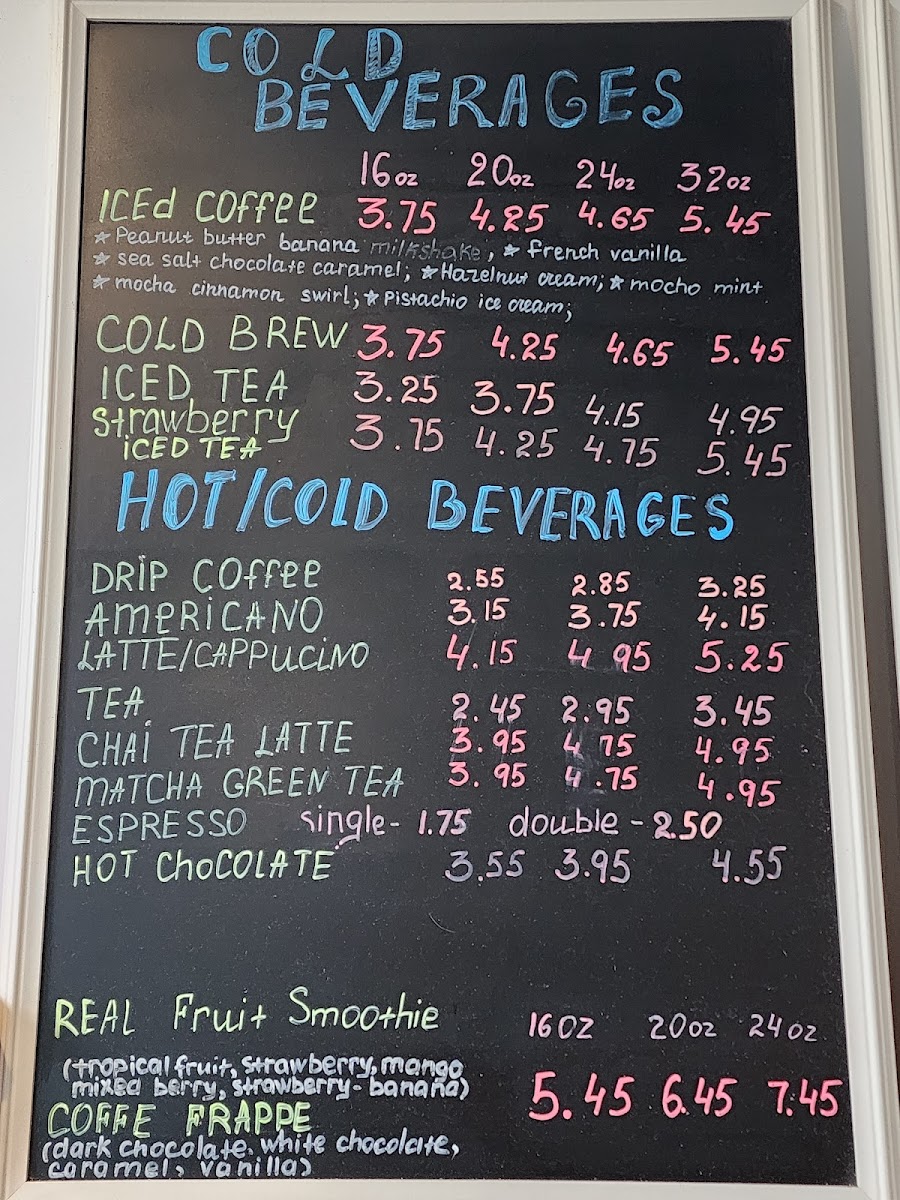 COLD
BEVERAGES
16oz 20oz 24oz 32oz
ICEd COffee 3.75 4.25 4.65 5.45
★ Peanut butter banana milkshake, ★ french vanilla
★ sea salt chocolate caramel; ★ Hazelnut cream; ★ mocho mint
★ mocha cinnamon swirl; ★ Pistachio ice cream;
COLD BREW 3.75 4.25 4.65 5.45
ICED TEA 3.25 3.75 4.15 4.95
strawberry
iCED TEA 3.75 4.25 4.75 5.45
HOT/COLD BEVERAGES
DRiP COffee 2.55 2.85 3.25
AMERiCANO 3.15 3.75 4.15
LATTE/CAPPUCiNO 4.15 4 95 5.25
TEA 2.45 2.95 3.45
CHAi TEA LATTE 3.95 4 75 4.95
MATCHA GREEN TEA 3.95 4.75 4.95
ESPRESSO single- 1.75 double - 2.50
HOT ChoCOLATE 3.55 3.95 4.55
REAL Fruit Smoothie 16OZ 20oz 24oz
(tropical fruit, strawberry, mango
mixed berry, strawberry-banana) 5.45 6.45 7.45
COFFE FRAPPE
(dark chocolate, white chocolate,
caramel, vanilla)